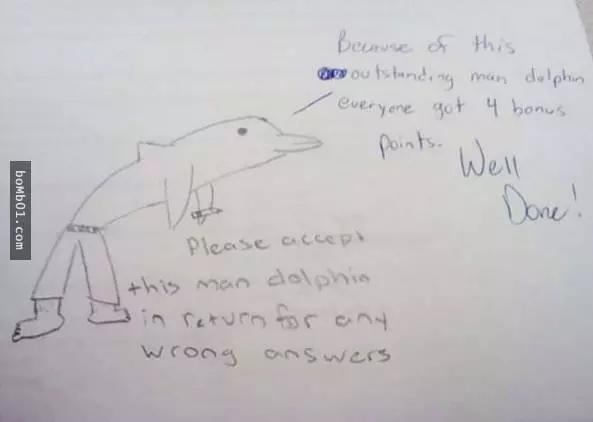 Because of this
outstanding man dolphin
everyone got 4 bonus
points.
Well
Done!
Please accept
this man dolphin
in return for any
wrong answers
boMb01.com